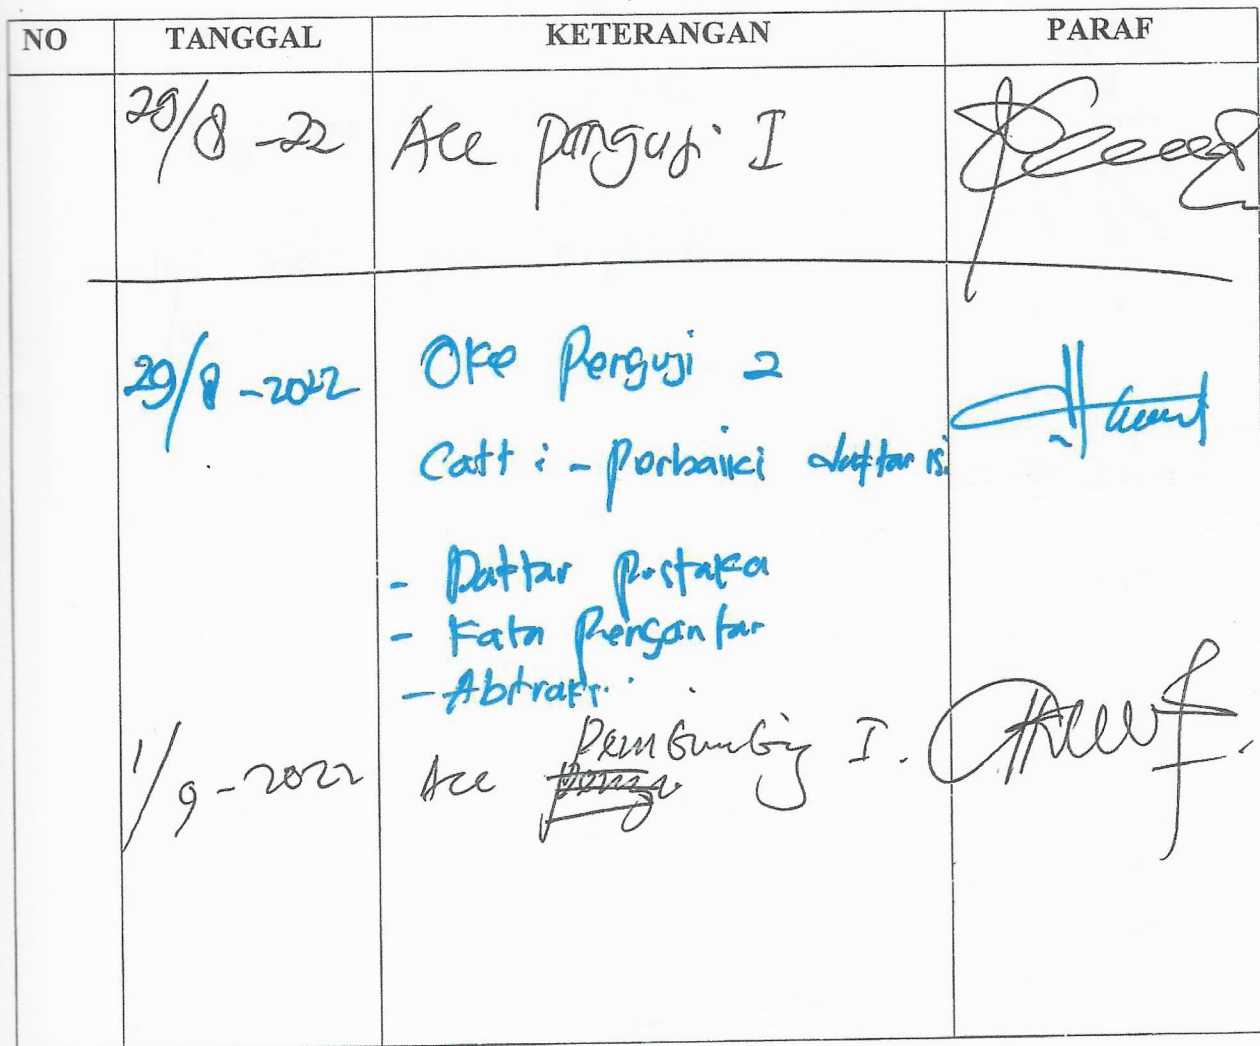 NO TANGGAL KETERANGAN PARAF
29/8 -22 Acc penguji I
29/8 -2022 Oke Penguji 2
Catt : - Perbaiki daftar isi
- Daftar Pustaka
- Kata Pengantar
- Abtrak
1/9 -2022 Acc Pembimbing I.